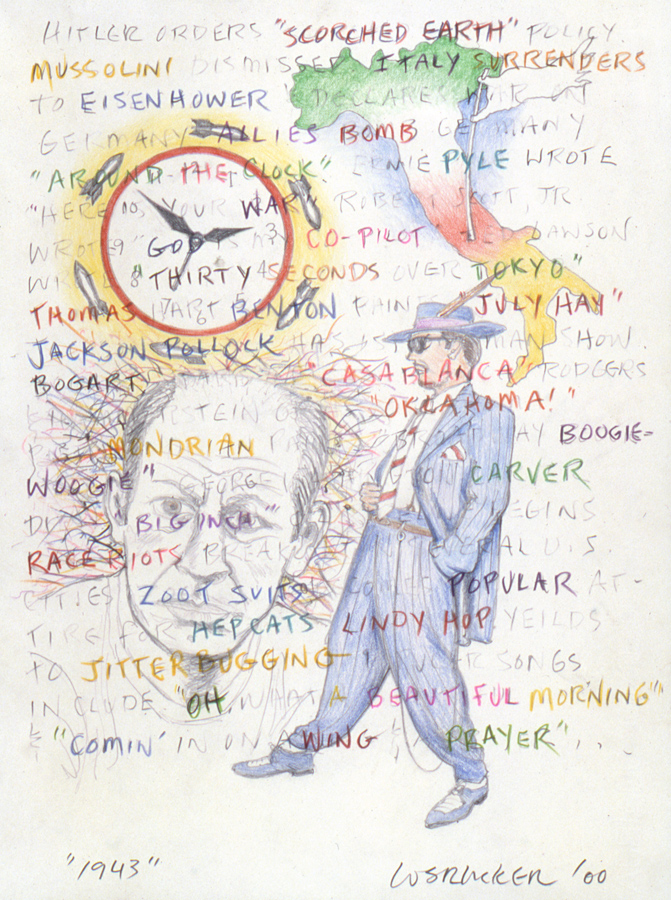 HITLER ORDERS "SCORCHED EARTH" POLICY.
MUSSOLINI DISMISSED, ITALY SURRENDERS
TO EISENHOWER DECLARES WAR ON
GERMANY ALLIES BOMB GERMANY
"AROUND THE CLOCK" ERNIE PYLE WROTE
"HERE IS YOUR WAR" ROBERT SCOTT, JR.
WROTE "GOD IS MY CO-PILOT" LAWSON
WROTE "THIRTY SECONDS OVER TOKYO"
THOMAS HART BENTON PAINTS "JULY HAY"
JACKSON POLLOCK HAS 1ST ONE MAN SHOW.
BOGART "CASABLANCA" RODGERS
"OKLAHOMA!"
MONDRIAN BOOGIE-
WOOGIE" GEORGE CARVER
"BIG INCH" BEGINS
RACE RIOTS BREAKOUT IN SEVERAL U.S.
CITIES ZOOT SUITS POPULAR AT-
TIRE FOR HEPCATS LINDY HOP YEILDS
TO JITTERBUGGING POPULAR SONGS
INCLUDE "OH WHAT A BEAUTIFUL MORNING"
& "COMIN' IN ON A WING & A PRAYER"...
10
3
9
8
4
7
6
5
"1943"
WSRUCKER '00